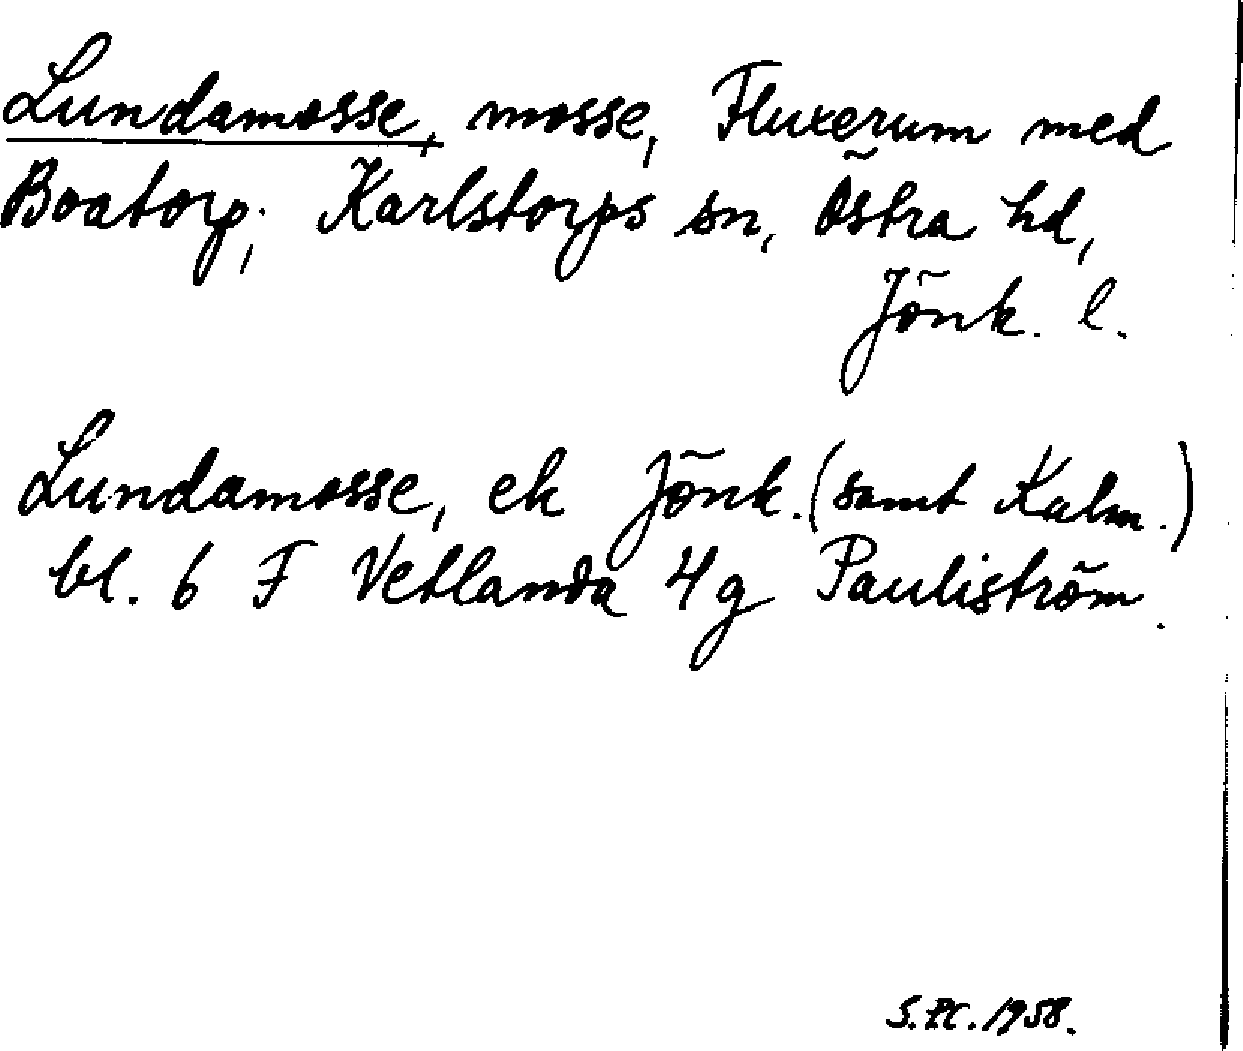 Lundamosse, mosse, Fluxerum med
Boatorp, Karlstorps sn, Östra hd,
Jönk. l.
Lundamosse, ek Jönk. (samt Kalm.)
bl. 6 F Vetlanda 4g Pauliström.
1958.